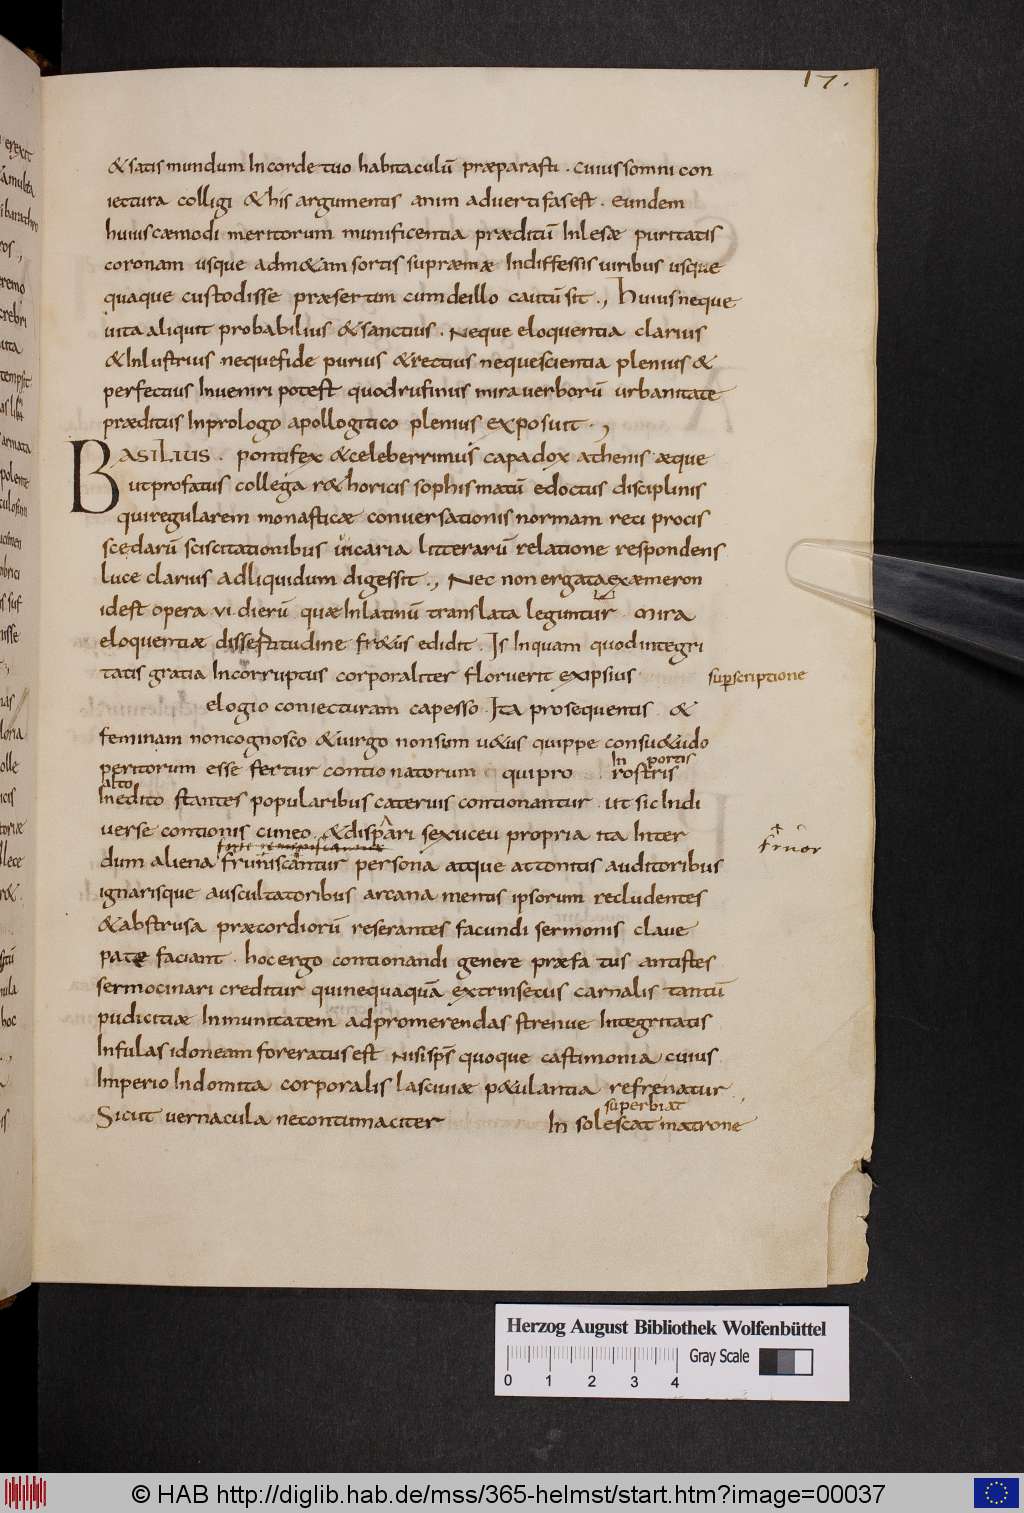 17.
& satis mundum In corde tuo habitaculū præparasti . Cuius somni con
iectura colligi & his argumentis anim adverti fas est . Eundem
huiuscæmodi meritorum munificentia præditū Inlesæ puritatis
coronam usque adm&am sortis supræmæ Indiffessis viribus usque
quaque custodisse præsertim cum de illo cautū sit ., Huius neque
vita aliquit probabilius & sanctius . Neque eloquentia clarius
& Inlustrius neque fide purius & rectius neque scientia plenius &
perfectius Inveniri potest quod rufinus mira verborū urbanitate
præditus In prologo apollogitico plenius exposuit .,
BASILIUS . pontifex & celeberrimus capadox athenis æque
ut profatus collega r&horicis sophismatū edoctus disciplinis
qui regularem monasticæ conversationis normam reci procis
scedarū sciscitationibus vicaria litterarū relatione respondens
luce clarius ad liquidum digessit ., Nec non ergata exæmeron
id est opera vi dierū quæ In latinū translata leguntur . mira
eloquentiæ dissertitudine fr&us edidit . Is Inquam quod integri
tatis gratia Incorruptus corporaliter floruerit ex ipsius
superscriptione
elogio coniecturam capesso . Ita prosequentis &
feminam non cognosco & virgo non sum u&us quippe consu&udo
In portis
peritorum esse fertur contionatorum qui pro rostris
alto
In edito stantes popularibus catervis contionantur ut sic Indi
verse contionis cuneo . & dispari sexu ceu propria ita Inter
fruor
dum aliena fruniscantur persona atque attonitis auditoribus
ignarisque auscultatoribus arcana mentis ipsorum recludentes
& abstrusa præcordiorū reserantes facundi sermonis clave
pate faciant . hoc ergo contionandi genere præfa tus antistes
sermocinari creditur qui nequaquā extrinsecus carnalis tantū
pudicitiæ Inmunitatem ad promerendas strenue Integritatis
Infulas idoneam foreratus est Nisi sp̄s quoque castimonia cuius
Imperio Indomita corporalis lasciviæ p&ulantia refrenatur
superbiat
Sicut vernacula ne contumaciter In solescat matrone
Herzog August Bibliothek Wolfenbüttel
Gray Scale
0 1 2 3 4
© HAB http://diglib.hab.de/mss/365-helmst/start.htm?image=00037